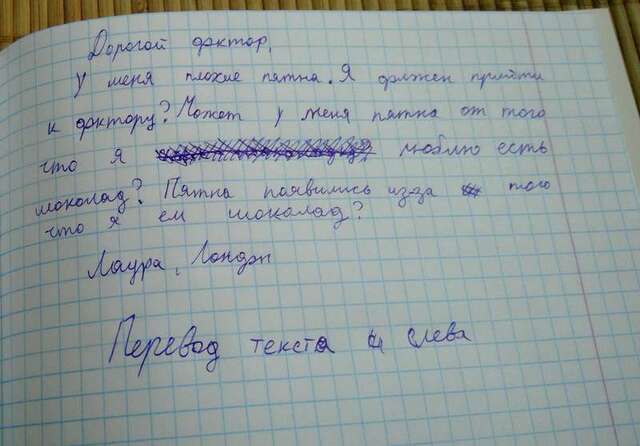 Дорогой доктор,
У меня плохие пятна. Я должен прийти
к доктору? Может у меня пятна от того
что я люблю есть
шоколад? Пятна появились из-за того
что я ем шоколад?
Лаура, Лондон
Перевод текста 4 слева